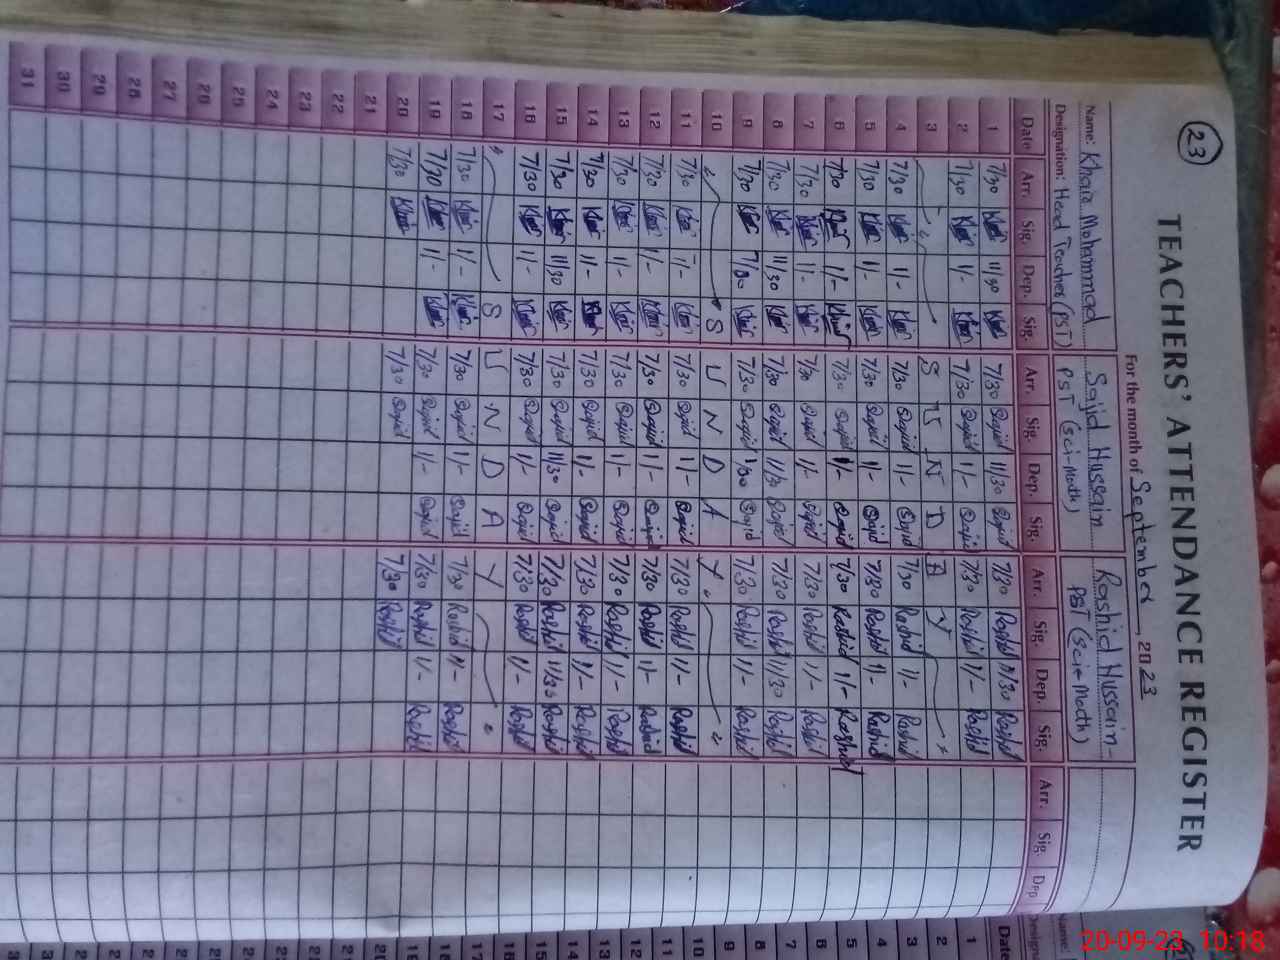 23
TEACHERS' ATTENDANCE REGISTER
For the month of September, 2023
Name: Khair Mohammad Sajid Hussain Rashid Hussain
Designation: Head Teacher (PST) PST (Sci-Math) PST (Scie-Math)
Date Arr. Sig. Dep. Sig. Arr. Sig. Dep. Sig. Arr. Sig. Dep. Sig. Arr. Sig. Dep
1 7/30 Khair 11/30 Khair 7/30 Sajid 11/30 Sajid 7/30 Rashid 11/30 Rashid
2 7/30 Khair 1/- Khair 7/30 Sajid 1/- Sajid 7/30 Rashid 1/- Rashid
3 S U N D A Y
4 7/30 Khair 1/- Khair 7/30 Sajid 1/- Sajid 7/30 Rashid 1/- Rashid
5 7/30 Khair 1/- Khair 7/30 Sajid 1/- Sajid 7/30 Rashid 1/- Rashid
6 7/30 Khair 1/- Khair 7/30 Sajid 1/- Sajid 7/30 Rashid 1/- Rashid
7 7/30 Khair 1/- Khair 7/30 Sajid 1/- Sajid 7/30 Rashid 1/- Rashid
8 7/30 Khair 11/30 Khair 7/30 Sajid 11/30 Sajid 7/30 Rashid 11/30 Rashid
9 7/30 Khair Khair 7/30 Sajid Sajid 7/30 Rashid 1/- Rashid
10 S U N D A Y
11 7/30 Khair 1/- Khair 7/30 Sajid 1/- Sajid 7/30 Rashid 1/- Rashid
12 7/30 Khair 1/- Khair 7/30 Sajid 1/- Sajid 7/30 Rashid 1/- Rashid
13 7/30 Khair 1/- Khair 7/30 Sajid 1/- Sajid 7/30 Rashid 1/- Rashid
14 7/30 Khair 1/- Khair 7/30 Sajid 1/- Sajid 7/30 Rashid 1/- Rashid
15 7/30 Khair 11/30 Khair 7/30 Sajid 11/30 Sajid 7/30 Rashid 11/30 Rashid
16 7/30 Khair 1/- Khair 7/30 Sajid 1/- Sajid 7/30 Rashid 1/- Rashid
17 S U N D A Y
18 7/30 Khair 1/- Khair 7/30 Sajid 1/- Sajid 7/30 Rashid 1/- Rashid
19 7/30 Khair 1/- Khair 7/30 Sajid 1/- Sajid 7/30 Rashid 1/- Rashid
20 7/30 Khair 7/30 Sajid 7/30 Rashid
21
22
23
24
25
26
27
28
29
30
31
Name:
Date
1
2
3
4
5
6
7
8
9
10
11
12
13
14
15
16
17
18
19
20-09-23 10:18